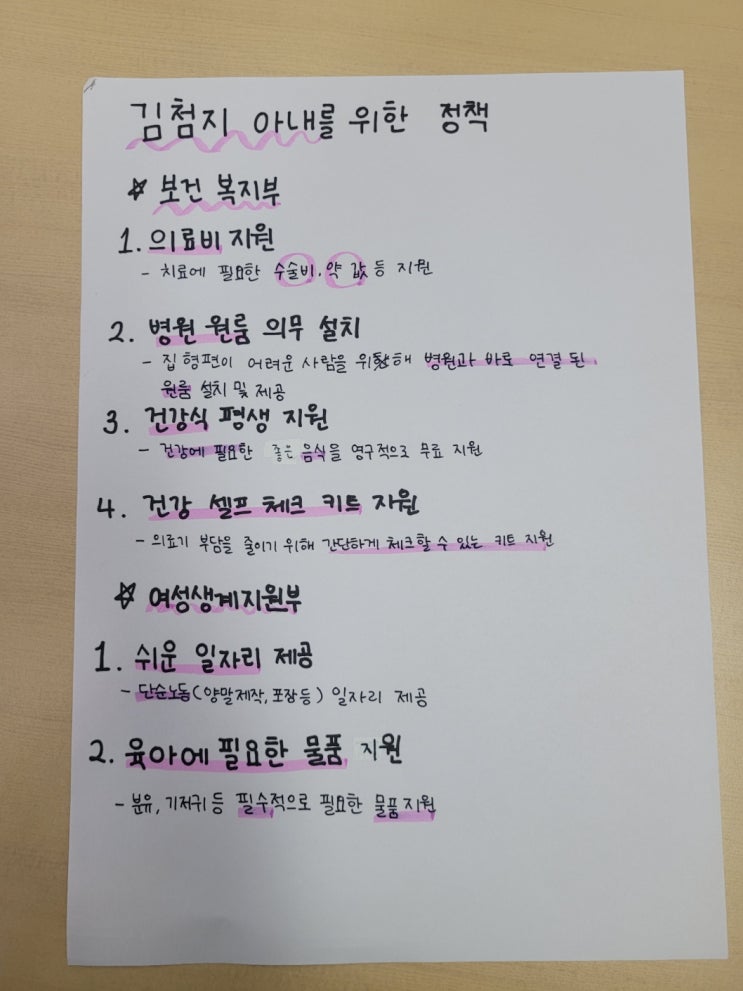 김첨지 아내를 위한 정책
☆ 보건 복지부
1. 의료비 지원
- 치료에 필요한 수술비, 약 값 등 지원
2. 병원 원룸 의무 설치
- 집 형편이 어려운 사람을 위해 병원과 바로 연결 된
원룸 설치 및 제공
3. 건강식 평생 지원
- 건강에 필요한 좋은 음식을 영구적으로 무료 지원
4. 건강 셀프 체크 키트 지원
- 의료기 부담을 줄이기 위해 간단하게 체크할 수 있는 키트 지원
☆ 여성생계지원부
1. 쉬운 일자리 제공
- 단순노동(양말제작, 포장등) 일자리 제공
2. 육아에 필요한 물품 지원
- 분유, 기저귀 등 필수적으로 필요한 물품 지원